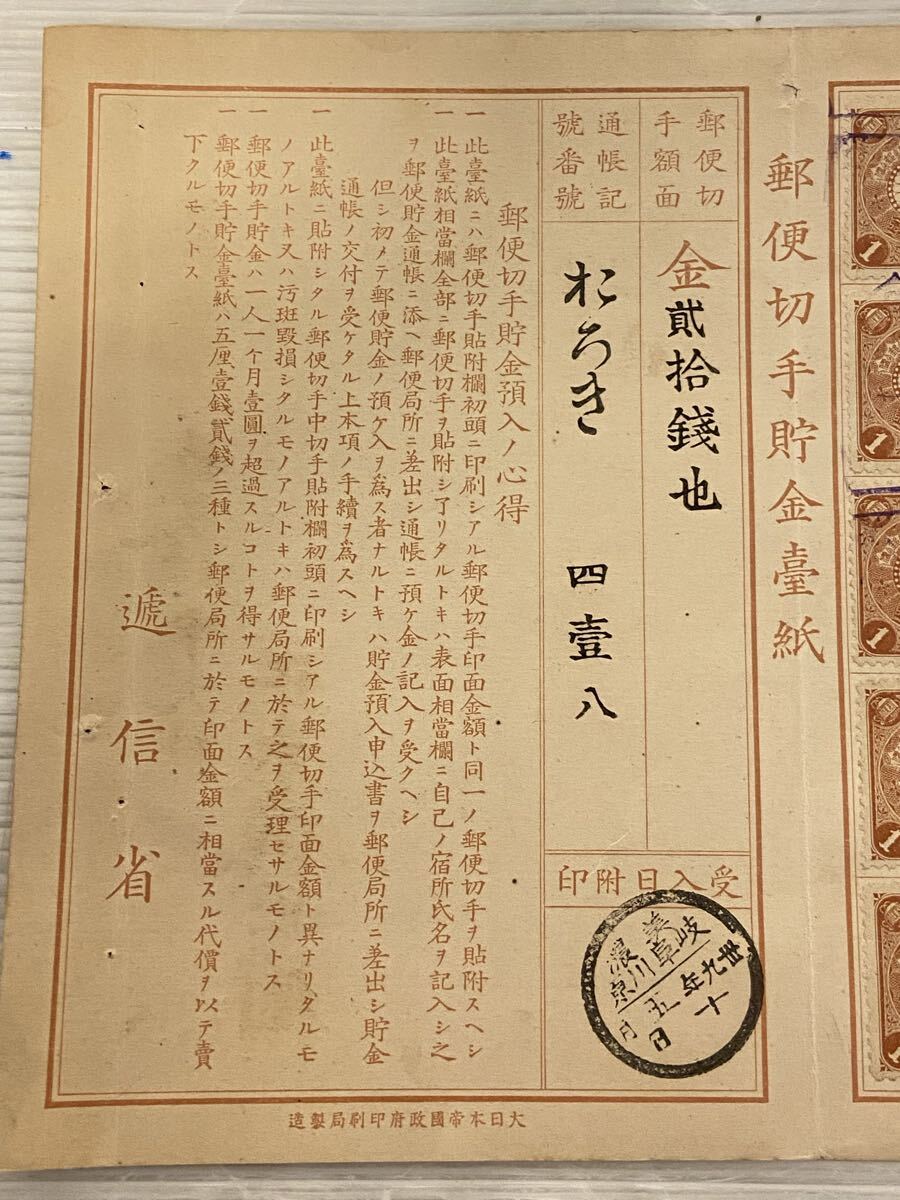 郵便切手貯金臺紙
郵便切手額面
金貳拾錢也
通帳記號番號
おろき 四壹八
受入日附印
岐阜
美濃
川
卅九年
十月
五日
郵便切手貯金預入ノ心得
一 此臺紙ニハ郵便切手貼附欄初頭ニ印刷シアル郵便切手印面金額ト同一ノ郵便切手ヲ貼附スヘシ
一 此臺紙相當欄全部ニ郵便切手ヲ貼附シ了リタルトキハ表面相當欄ニ自己ノ宿所氏名ヲ記入シ之
ヲ郵便貯金通帳ニ添ヘ郵便局所ニ差出シ通帳ニ預ケ金ノ記入ヲ受クヘシ
但シ初メテ郵便貯金ノ預ケ入ヲ爲ス者ナルトキハ貯金預入申込書ヲ郵便局所ニ差出シ貯金
通帳ノ交付ヲ受ケタル上本項ノ手續ヲ爲スヘシ
一 此臺紙ニ貼附シタル郵便切手中切手貼附欄初頭ニ印刷シアル郵便切手印面金額ト異ナリタルモ
ノアルトキ又ハ汚斑毀損シタルモノアルトキハ郵便局所ニ於テ之ヲ受理セサルモノトス
一 郵便切手貯金ハ一人一个月壹圓ヲ超過スルコトヲ得サルモノトス
一 郵便切手貯金臺紙ハ五厘壹錢貳錢ノ三種トシ郵便局所ニ於テ印面金額ニ相當スル代價ヲ以テ賣
下クルモノトス
遞信省
大日本帝國政府印刷局製造
1
1
1
1
1